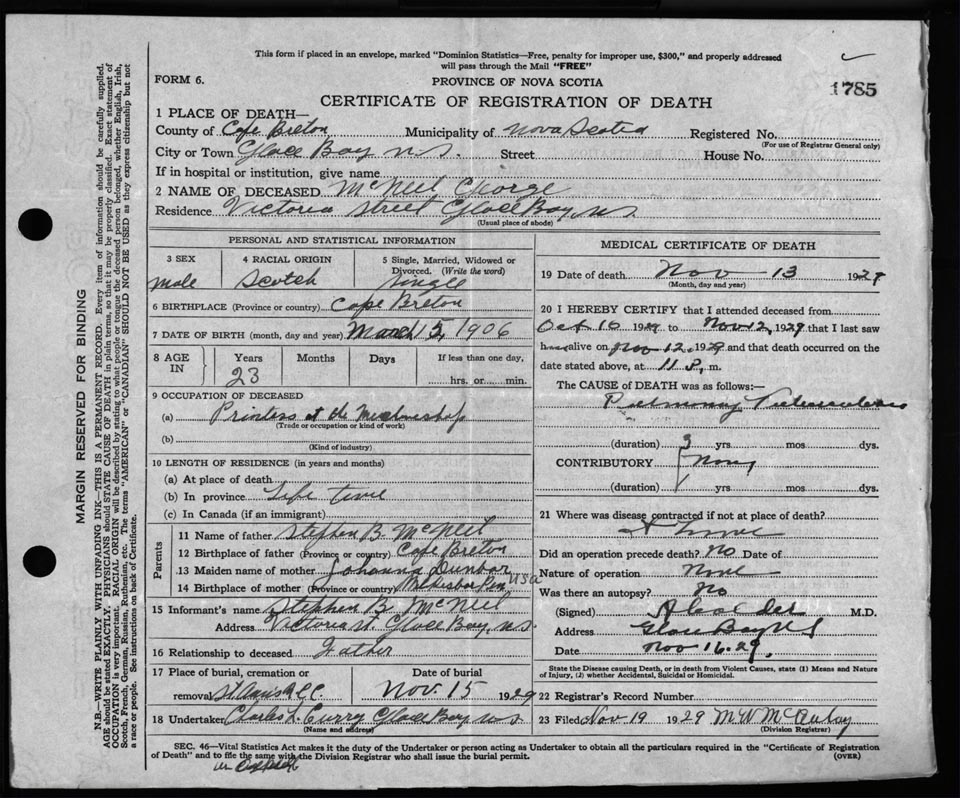 This form if placed in an envelope, marked "Dominion Statistics—Free, penalty for improper use, $300," and properly addressed
will pass through the Mail "FREE"
FORM 6.
PROVINCE OF NOVA SCOTIA
1785
CERTIFICATE OF REGISTRATION OF DEATH
1 PLACE OF DEATH—
County of Cape Breton Municipality of Nova Scotia Registered No.
(For use of Registrar General only)
City or Town Glace Bay N.S. Street House No.
If in hospital or institution, give name
2 NAME OF DECEASED McNeil George
Residence Victoria Street Glace Bay, N.S.
(Usual place of abode)
PERSONAL AND STATISTICAL INFORMATION
3 SEX 4 RACIAL ORIGIN 5 Single, Married, Widowed or
Divorced. (Write the word)
male Scotch Single
6 BIRTHPLACE (Province or country) Cape Breton
7 DATE OF BIRTH (month, day and year) March 15, 1906
8 AGE IN Years Months Days If less than one day,
23 hrs. or min.
9 OCCUPATION OF DECEASED
(a) at the
(Trade or occupation or kind of work)
(b)
(Kind of industry)
10 LENGTH OF RESIDENCE (in years and months)
(a) At place of death
(b) In province Life time
(c) In Canada (if an immigrant)
Parents
11 Name of father Stephen B. McNeil
12 Birthplace of father (Province or country) Cape Breton
13 Maiden name of mother Johanna Dunbar
14 Birthplace of mother (Province or country) USA
15 Informant's name Stephen B. McNeil
Address Victoria St. Glace Bay, N.S.
16 Relationship to deceased Father
17 Place of burial, cremation or Date of burial
removal Nov. 15 1929
18 Undertaker Charles L. Curry Glace Bay N.S.
(Name and address)
MEDICAL CERTIFICATE OF DEATH
19 Date of death Nov 13 1929
(Month, day and year)
20 I HEREBY CERTIFY that I attended deceased from
Oct 10 1929 to Nov 12, 1929 that I last saw
him alive on Nov 12, 1929 and that death occurred on the
date stated above, at 11 P. m.
The CAUSE of DEATH was as follows:—
Pulmonary Tuberculosis
(duration) 3 yrs mos dys.
CONTRIBUTORY None
(duration) yrs mos dys.
21 Where was disease contracted if not at place of death?
At home
Did an operation precede death? No Date of
Nature of operation None
Was there an autopsy? No
(Signed) M.D.
Address Glace Bay N.S.
Date Nov 16. 29.
State the Disease causing Death, or in death from Violent Causes, state (1) Means and Nature
of Injury, (2) whether Accidental, Suicidal or Homicidal.
22 Registrar's Record Number
23 Filed Nov 19 1929 M W McAulay
(Division Registrar)
SEC. 46—Vital Statistics Act makes it the duty of the Undertaker or person acting as Undertaker to obtain all the particulars required in the "Certificate of Registration
of Death" and to file the same with the Division Registrar who shall issue the burial permit.
(OVER)
MARGIN RESERVED FOR BINDING
N.B.—WRITE PLAINLY WITH UNFADING INK—THIS IS A PERMANENT RECORD. Every item of information should be carefully supplied.
AGE should be stated EXACTLY. PHYSICIANS should STATE CAUSE OF DEATH in plain terms, so that it may be properly classified. Exact statement of
OCCUPATION is very important. RACIAL ORIGIN will be described by stating to what people or tongue the deceased person belonged, whether English, Irish,
Scotch, French, German, Russian, Ruthenian, etc. The terms "AMERICAN" or "CANADIAN" SHOULD NOT BE USED as they express citizenship but not
a race or people. See instructions on back of Certificate.